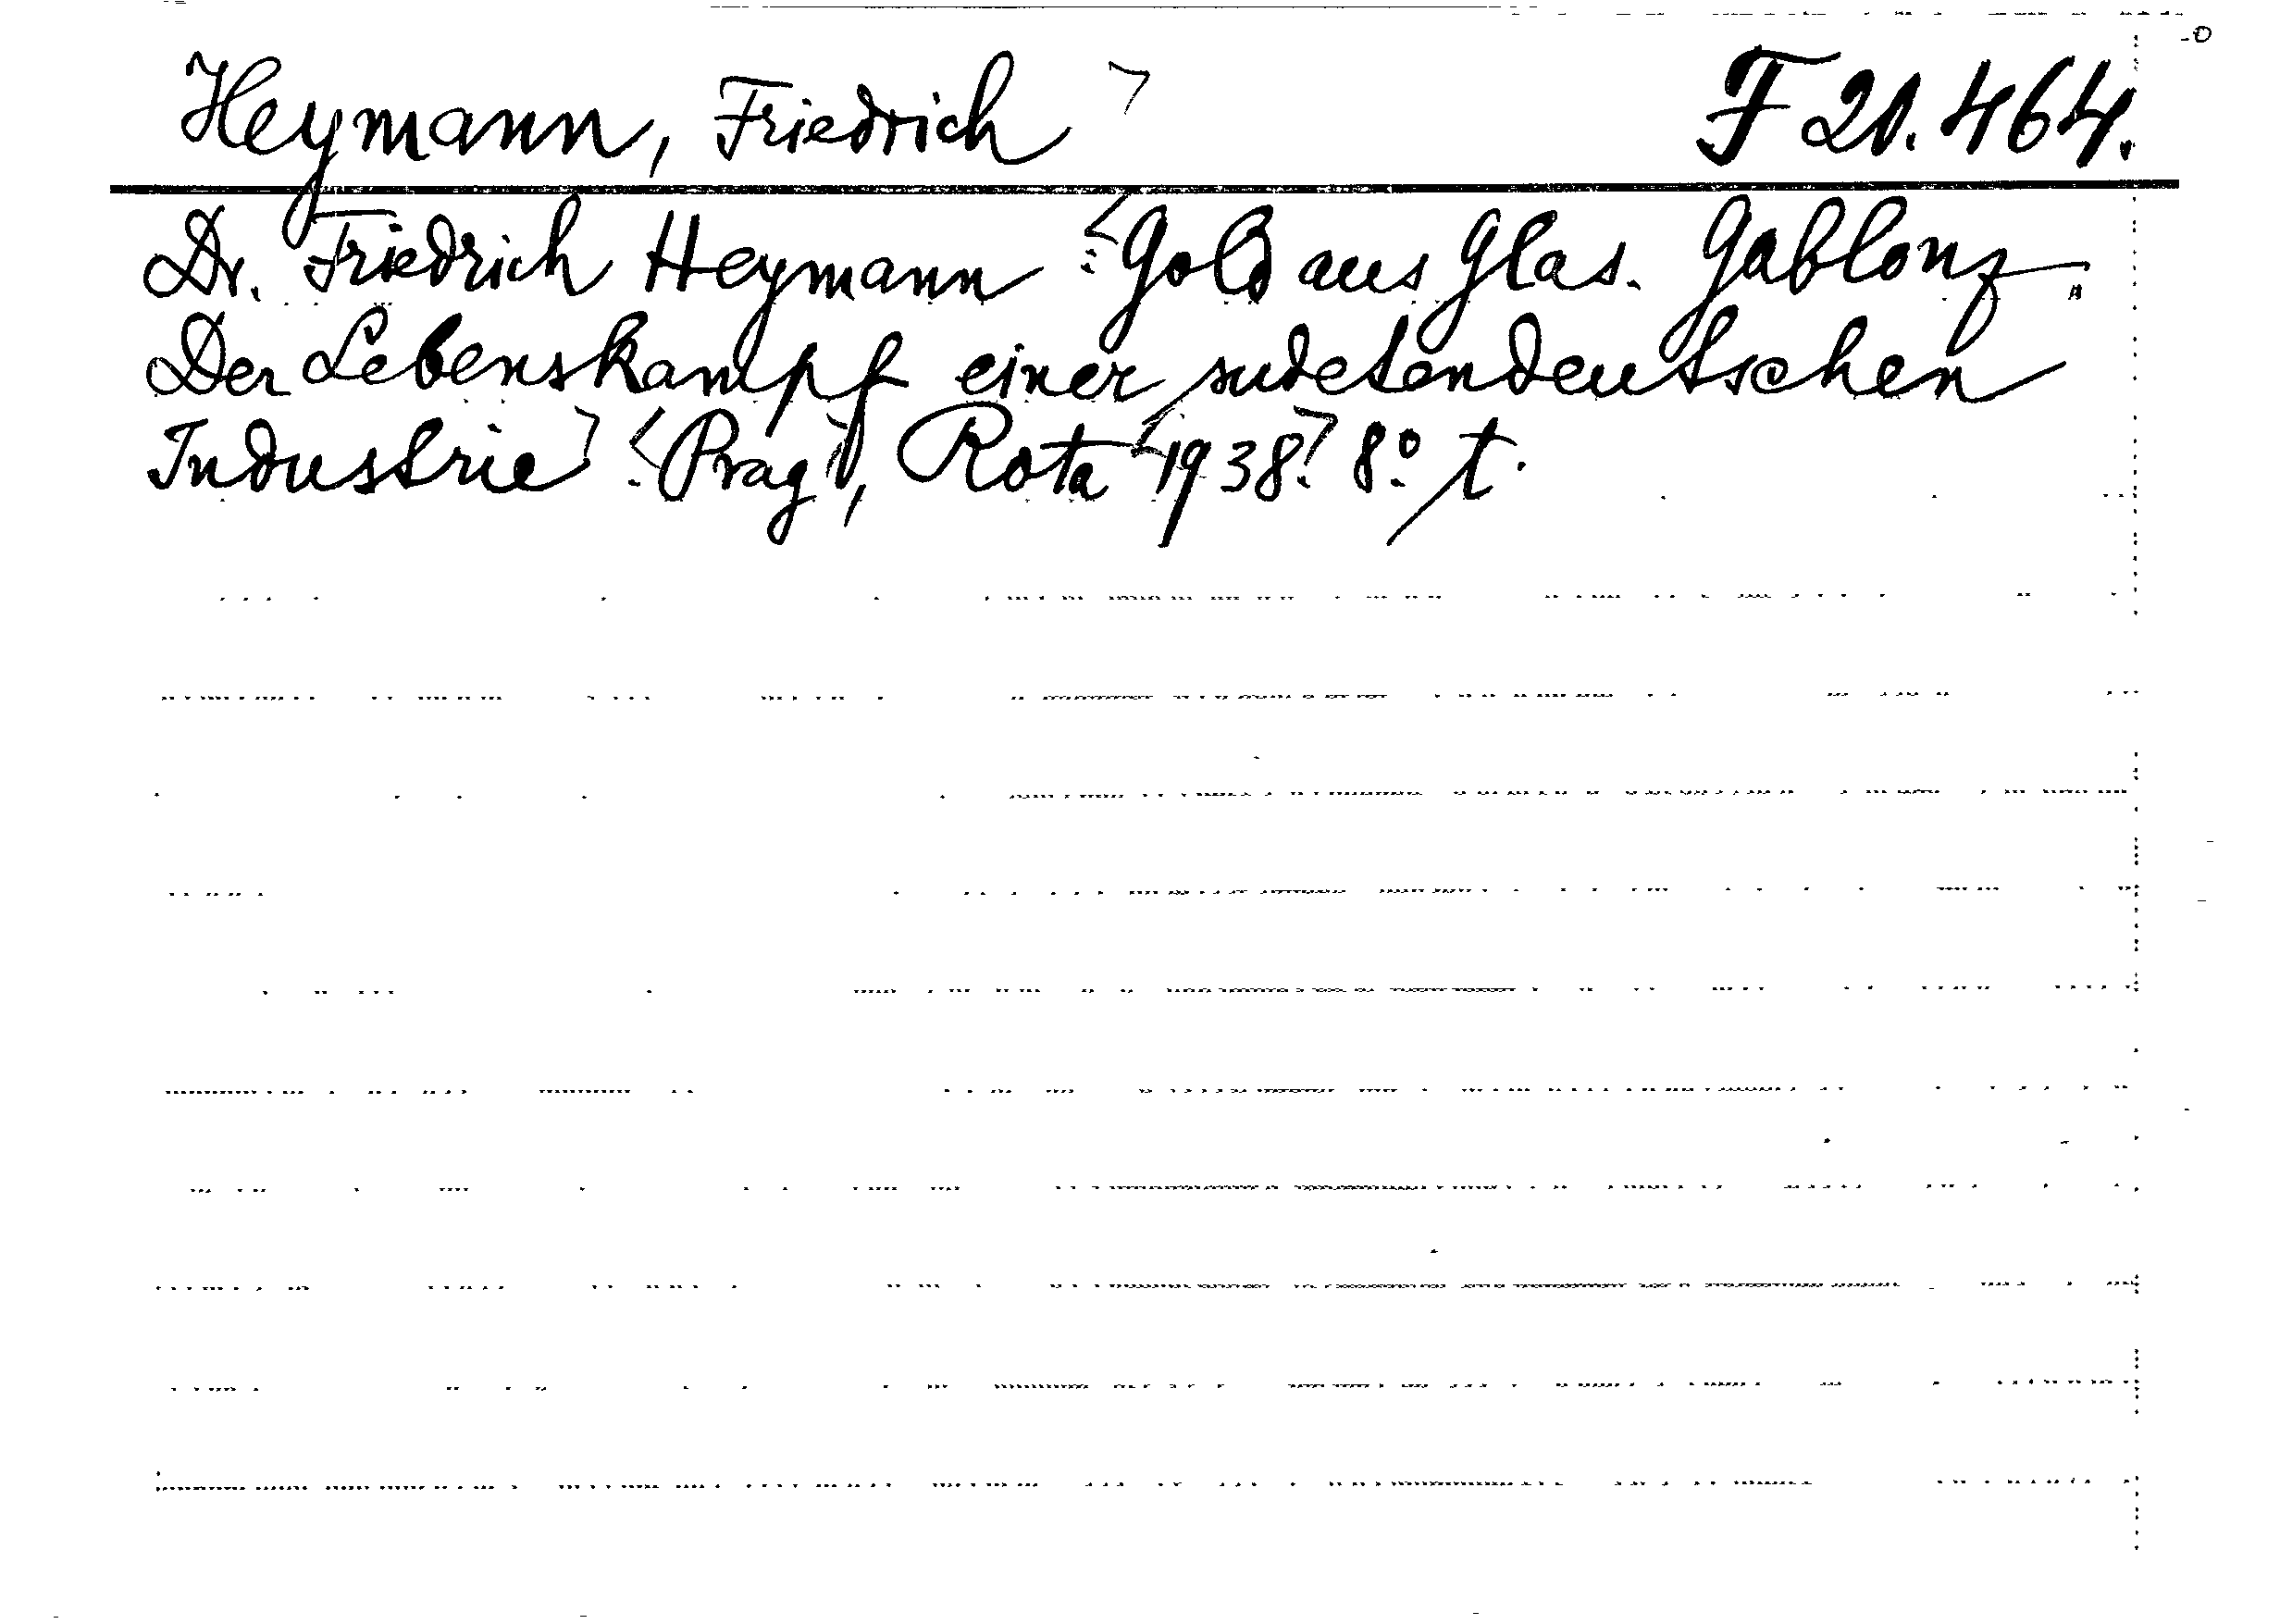 Heymann, Friedrich F 21.464.
Dr. Friedrich Heymann : Gold aus Glas. Gablonz.
Der Lebenskampf einer sudetendeutschen
Industrie. Prag, Rota 1938. 8° t.